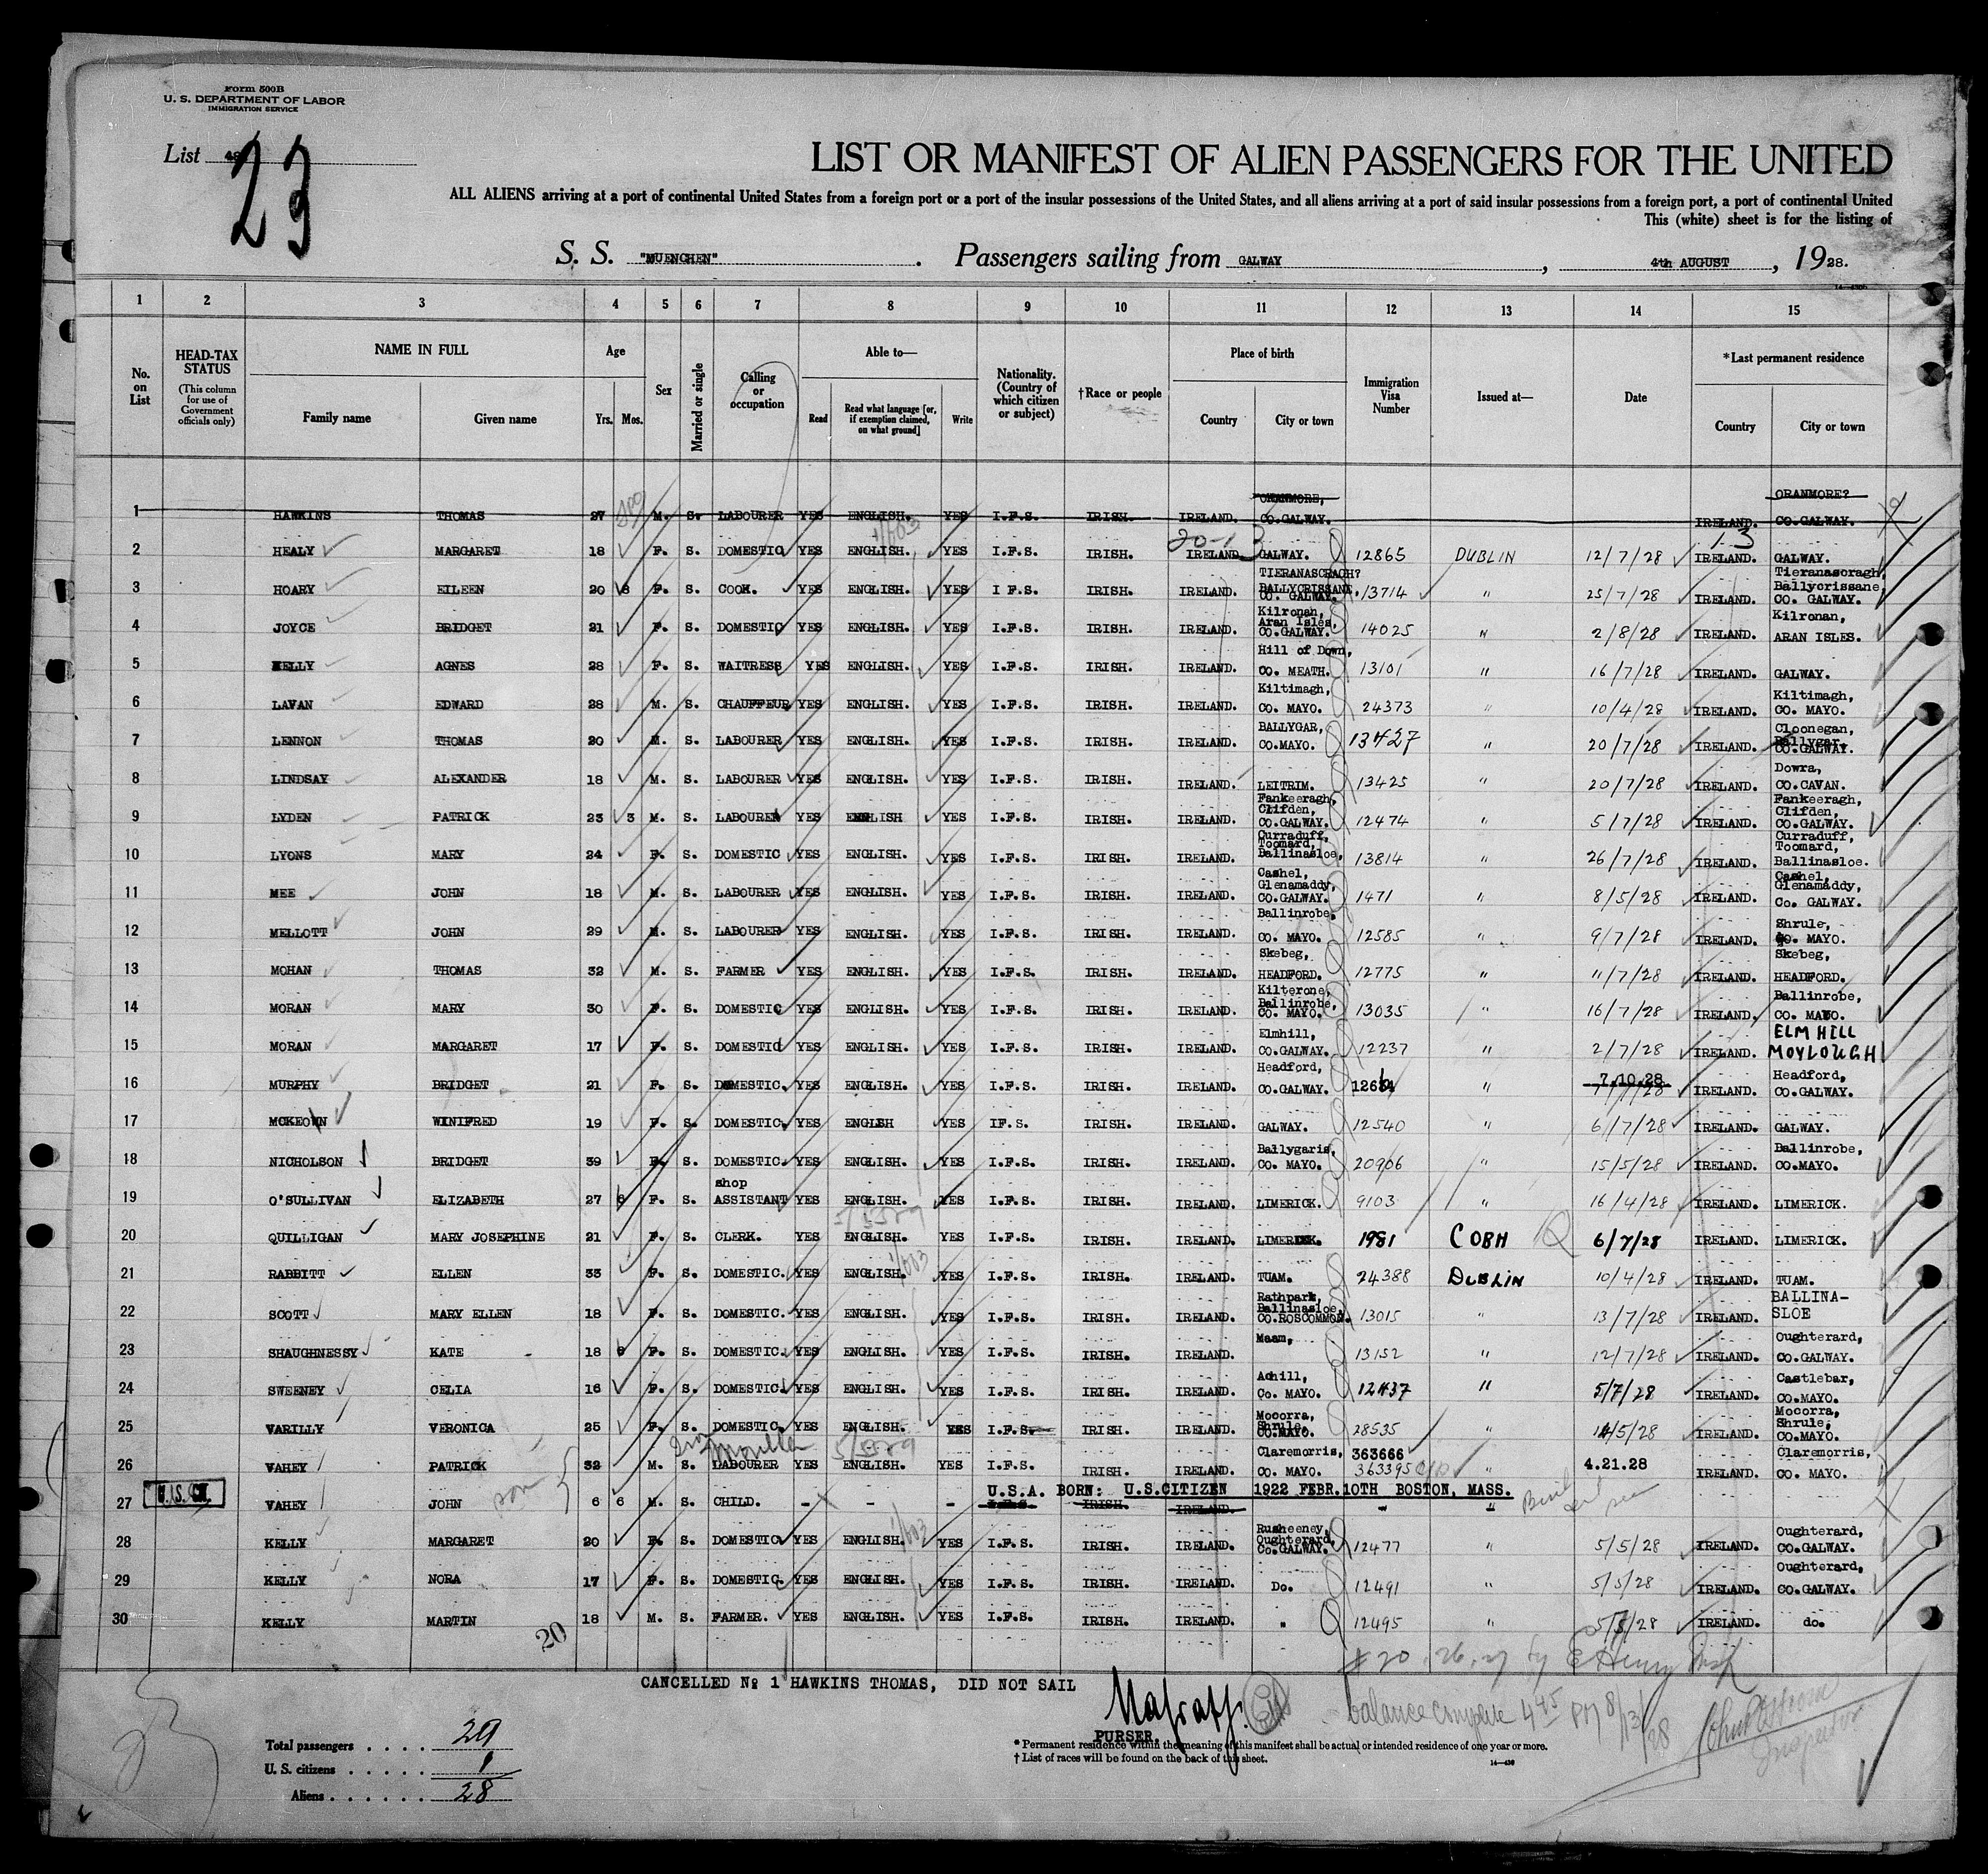 Form 500B
U. S. DEPARTMENT OF LABOR
IMMIGRATION SERVICE
List 23
LIST OR MANIFEST OF ALIEN PASSENGERS FOR THE UNITED
ALL ALIENS arriving at a port of continental United States from a foreign port or a port of the insular possessions of the United States, and all aliens arriving at a port of said insular possessions from a foreign port, a port of continental United
This (white) sheet is for the listing of
S. S. "MUENCHEN" . Passengers sailing from GALWAY , 4th AUGUST , 1928.
1 2 3 4 5 6 7 8 9 10 11 12 13 14 15
No. on List HEAD-TAX STATUS (This column for use of Government officials only) NAME IN FULL Family name Given name Age Yrs. Mos. Sex Married or single Calling or occupation Able to— Read Read what language [or, if exemption claimed, on what ground] Write Nationality. (Country of which citizen or subject) †Race or people Place of birth Country City or town Immigration Visa Number Issued at— Date *Last permanent residence Country City or town
1 HAWKINS THOMAS 27 M. S. LABOURER YES ENGLISH. YES I.F.S. IRISH. IRELAND. ORANMORE, CO.GALWAY. IRELAND. ORANMORE? CO.GALWAY.
2 HEALY MARGARET 18 F. S. DOMESTIC YES ENGLISH. YES I.F.S. IRISH. IRELAND GALWAY. 12865 DUBLIN 12/7/28 IRELAND. GALWAY.
3 HOARY EILEEN 20 8 F. S. COOK. YES ENGLISH. YES I F.S. IRISH. IRELAND. TIERANASCRAGH? BALLYCRISSANE, CO. GALWAY. 13714 " 25/7/28 IRELAND. Tieranascragh, Ballycrissane, CO. GALWAY.
4 JOYCE BRIDGET 21 F. S. DOMESTIC YES ENGLISH. YES I.F.S. IRISH. IRELAND. Kilronan, Aran Isles, CO.GALWAY. 14025 " 2/8/28 IRELAND. Kilronan, ARAN ISLES.
5 KELLY AGNES 28 F. S. WAITRESS YES ENGLISH. YES I.F.S. IRISH. IRELAND. Hill of Down, CO. MEATH. 13101 " 16/7/28 IRELAND. GALWAY.
6 LAVAN EDWARD 28 M. S. CHAUFFEUR YES ENGLISH. YES I.F.S. IRISH. IRELAND. Kiltimagh, CO. MAYO. 24373 " 10/4/28 IRELAND. Kiltimagh, CO. MAYO.
7 LENNON THOMAS 20 M. S. LABOURER YES ENGLISH. YES I.F.S. IRISH. IRELAND. BALLYGAR, CO.MAYO. 13427 " 20/7/28 IRELAND. Cloonegan, Ballygar, CO.GALWAY.
8 LINDSAY ALEXANDER 18 M. S. LABOURER YES ENGLISH. YES I.F.S. IRISH. IRELAND. LEITRIM. 13425 " 20/7/28 IRELAND. Dowra, CO.CAVAN.
9 LYDEN PATRICK 23 3 M. S. LABOURER YES ENGLISH YES I.F.S. IRISH. IRELAND. Fankeeragh, Clifden, CO.GALWAY. 12474 " 5/7/28 IRELAND. Fankeeragh, Clifden, CO.GALWAY.
10 LYONS MARY 24 F. S. DOMESTIC YES ENGLISH. YES I.F.S. IRISH. IRELAND. Curraduff, Toomard, Ballinasloe, 13814 " 26/7/28 IRELAND. Curraduff, Toomard, Ballinasloe.
11 MEE JOHN 18 M. S. LABOURER YES ENGLISH. YES I.F.S. IRISH. IRELAND. Cashel, Glenamaddy, CO.GALWAY. 1471 " 8/5/28 IRELAND. Cashel, Glenamaddy, Co. GALWAY.
12 MELLOTT JOHN 29 M. S. LABOURER YES ENGLISH. YES I.F.S. IRISH. IRELAND. Ballinrobe, CO. MAYO. 12585 " 9/7/28 IRELAND. Shrule, CO. MAYO.
13 MOHAN THOMAS 32 M. S. FARMER YES ENGLISH. YES I.F.S. IRISH. IRELAND. Skebeg, HEADFORD. 12775 " 11/7/28 IRELAND. Skebeg, HEADFORD.
14 MORAN MARY 30 F. S. DOMESTIC YES ENGLISH. YES I.F.S. IRISH. IRELAND. Kilterone, Ballinrobe, CO. MAYO. 13035 " 16/7/28 IRELAND. Ballinrobe, CO. MAYO.
15 MORAN MARGARET 17 F. S. DOMESTIC YES ENGLISH. YES I.F.S. IRISH. IRELAND. Elmhill, CO.GALWAY. 12237 " 2/7/28 IRELAND. ELM HILL MOYLOUGH
16 MURPHY BRIDGET 21 F. S. DOMESTIC. YES ENGLISH. YES I.F.S. IRISH. IRELAND. Headford, CO.GALWAY. " 7.10.28 IRELAND. Headford, CO.GALWAY.
17 MCKEOWN WINIFRED 19 F. S. DOMESTIC. YES ENGLSH YES IF.S. IRISH. IRELAND. GALWAY. 12540 " 6/7/28 IRELAND. GALWAY.
18 NICHOLSON BRIDGET 39 F. S. DOMESTIC. YES ENGLISH. YES I.F.S. IRISH. IRELAND. Ballygaris, CO. MAYO. 20906 " 15/5/28 IRELAND. Ballinrobe, CO.MAYO.
19 O'SULLIVAN ELIZABETH 27 6 F. S. shop ASSISTANT YES ENGLISH. YES I.F.S. IRISH. IRELAND. LIMERICK. 9103 " 16/4/28 IRELAND. LIMERICK.
20 QUILLIGAN MARY JOSEPHINE 21 F. S. CLERK. YES ENGLISH. YES I.F.S. IRISH. IRELAND. LIMERICK. 1981 COBH 6/7/28 IRELAND. LIMERICK.
21 RABBITT ELLEN 33 F. S. DOMESTIC. YES ENGLISH. YES I.F.S. IRISH. IRELAND. TUAM. 24388 DUBLIN 10/4/28 IRELAND. TUAM.
22 SCOTT MARY ELLEN 18 F. S. DOMESTIC. YES ENGLISH. YES I.F.S. IRISH. IRELAND. Rathpark, Ballinasloe, CO.ROSCOMMON. 13015 " 13/7/28 IRELAND. BALLINA-SLOE
23 SHAUGHNESSY KATE 18 F. S. DOMESTIC. YES ENGLISH. YES I.F.S. IRISH. IRELAND. Maam, 13152 " 12/7/28 IRELAND. Oughterard, CO.GALWAY.
24 SWEENEY CELIA 16 F. S. DOMESTIC. YES ENGLISH. YES I.F.S. IRISH. IRELAND. Achill, Co. MAYO. 12437 " 5/7/28 IRELAND. Castlebar, CO.MAYO.
25 VARILLY VERONICA 25 F. S. DOMESTIC. YES ENGLISH. YES I.F.S. IRISH. IRELAND. Mocorra, Shrule, CO.MAYO. 28535 " 14/5/28 IRELAND. Mocorra, Shrule, CO.MAYO.
26 VAHEY PATRICK 32 M. S. Iron Moulder LABOURER YES ENGLISH. YES I.F.S. IRISH. IRELAND. Claremorris, CO. MAYO. 363666 363395 " 4.21.28 IRELAND. Claremorris, CO. MAYO.
27 VAHEY son JOHN 6 6 M. S. CHILD. - - - U.S.A. BORN: U.S.CITIZEN 1922 FEBR.10TH BOSTON, MASS. I.F.S. IRISH. IRELAND. " "
28 KELLY MARGARET 20 F. S. DOMESTIC YES ENGLISH. YES I.F.S. IRISH. IRELAND. Rusheeney, Oughterard, Co.GALWAY. 12477 " 5/5/28 IRELAND. Oughterard, CO.GALWAY.
29 KELLY NORA 17 F. S. DOMESTIC. YES ENGLISH. YES I.F.S. IRISH. IRELAND. Do. 12491 " 5/5/28 IRELAND. Oughterard, CO.GALWAY.
30 KELLY MARTIN 18 M. S. FARMER. YES ENGLISH. YES I.F.S. IRISH. IRELAND. " 12495 " IRELAND. do.
20
CANCELLED No 1 HAWKINS THOMAS, DID NOT SAIL
PURSER.
balance complete 4 45 PM 8/13/28
Inspector
Total passengers . . . . 29
U. S. citizens . . . . . 1
Aliens . . . . . . 28
* Permanent residence within the meaning of this manifest shall be actual or intended residence of one year or more.
† List of races will be found on the back of this sheet.
14—430